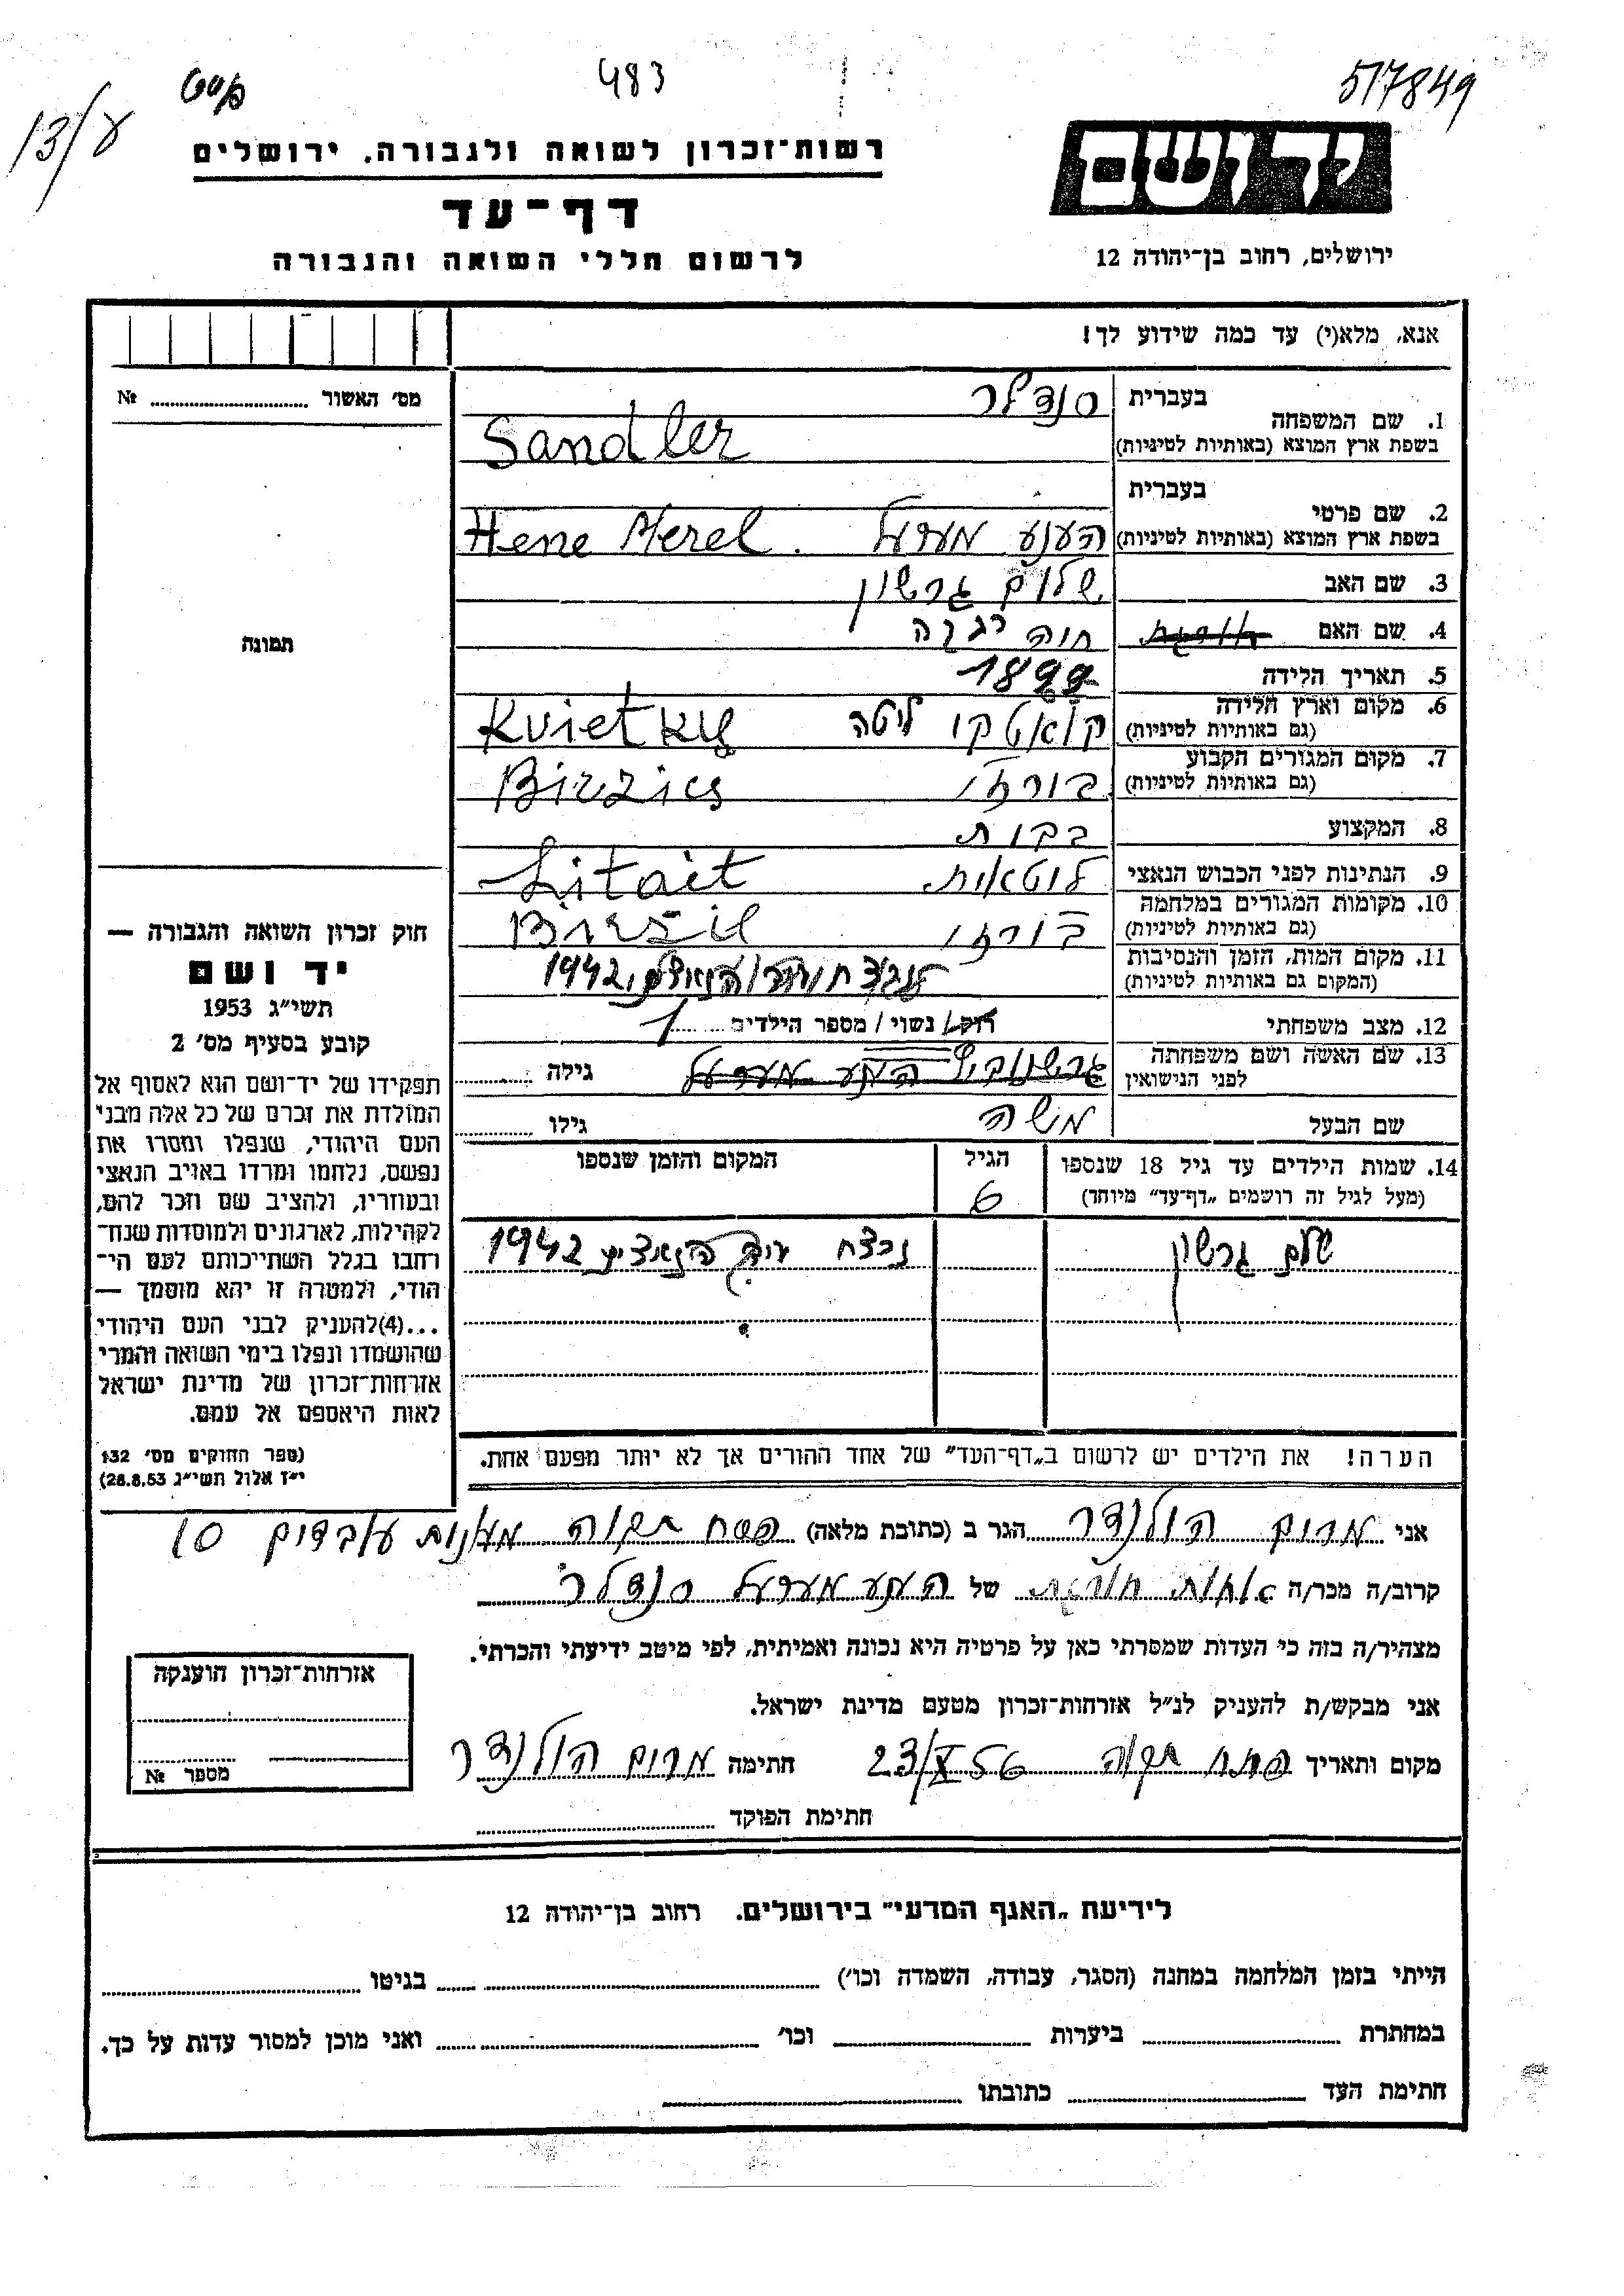 483
517849
13/ע
רשות־זכרון לשואה ולגבורה, ירושלים
דף־עד
לרשום חללי השואה והגבורה
יד ושם
ירושלים, רחוב בן־יהודה 12
אנא, מלא(י) עד כמה שידוע לך!
מס' האשור № 
1. שם המשפחה בעברית סנדלר
בשפת ארץ המוצא (באותיות לטיניות) Sandler
2. שם פרטי בעברית
בשפת ארץ המוצא (באותיות לטיניות) הענע מערעל Hene Merel.
3. שם האב שלום גרשון
4. שם האם חיה
5. תאריך הלידה 1899
6. מקום וארץ הלידה קויאטקי ליטה
(גם באותיות לטיניות) Kvietky
7. מקום המגורים הקבוע
(גם באותיות לטיניות) בירזי
8. המקצוע
9. הנתינות לפני הכבוש הנאצי ליטאית Litait
10. מקומות המגורים במלחמה
(גם באותיות לטיניות) בירזי
11. מקום המות, הזמן והנסיבות
(המקום גם באותיות לטיניות) 1942
12. מצב משפחתי רוק/ נשוי/ מספר הילדים 1
13. שם האשה ושם משפחתה
לפני הנישואין הענע מערעל גילה
שם הבעל משה גילו
14. שמות הילדים עד גיל 18 שנספו
(מעל לגיל זה רושמים „דף־עד” מיוחד)
הגיל
6
המקום והזמן שנספו
שלום גרשון
נרצח ע"י הנאצים 1942
הערה! את הילדים יש לרשום ב„דף־העד” של אחד ההורים אך לא יותר מפעם אחת.
תמונה
חוק זכרון השואה והגבורה —
יד ושם
תשי״ג 1953
קובע בסעיף מס' 2
תפקידו של יד־ושם הוא לאסוף אל
המולדת את זכרם של כל אלה מבני
העם היהודי, שנפלו ומסרו את
נפשם, נלחמו ומרדו באויב הנאצי
ובעוזריו, ולהציב שם וזכר להם,
לקהילות, לארגונים ולמוסדות שנח־
רחבו בגלל השתייכותם לעם הי־
הודי, ולמטרה זו יהא מוסמך —
...(4)להעניק לבני העם היהודי
שהושמדו ונפלו בימי השואה והמרי
אזרחות־זכרון של מדינת ישראל
לאות היאספם אל עמם.
(ספר החוקים מס' 132
י״ז אלול תשי״ג 28.8.53)
אני מרים הולנדר הגר ב (כתובת מלאה) פתח תקוה מעונות עובדים 10
קרוב/ה מכר/ה אחות חורגת של הענע מערעל סנדלר
מצהיר/ה בזה כי העדות שמסרתי כאן על פרטיה היא נכונה ואמיתית, לפי מיטב ידיעתי והכרתי.
אני מבקש/ת להעניק לנ״ל אזרחות־זכרון מטעם מדינת ישראל.
מקום ותאריך פתח תקוה 23/X 56 חתימה מרים הולנדר
חתימת הפוקד
אזרחות־זכרון הוענקה
מספר №
לידיעת „האגף המדעי” בירושלים, רחוב בן־יהודה 12
הייתי בזמן המלחמה במחנה (הסגר, עבודה, השמדה וכו') בגיטו
במחתרת ביערות וכו' ואני מוכן למסור עדות על כך.
חתימת העד כתובתו